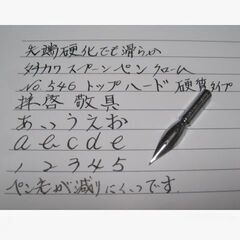 先端硬化でも滑らか
タチカワ スプーンペン クローム
No.546 トップハード 硬質タイプ
拝啓 敬具
あいうえお
abcde
12345
ペン先が減りにくいです。